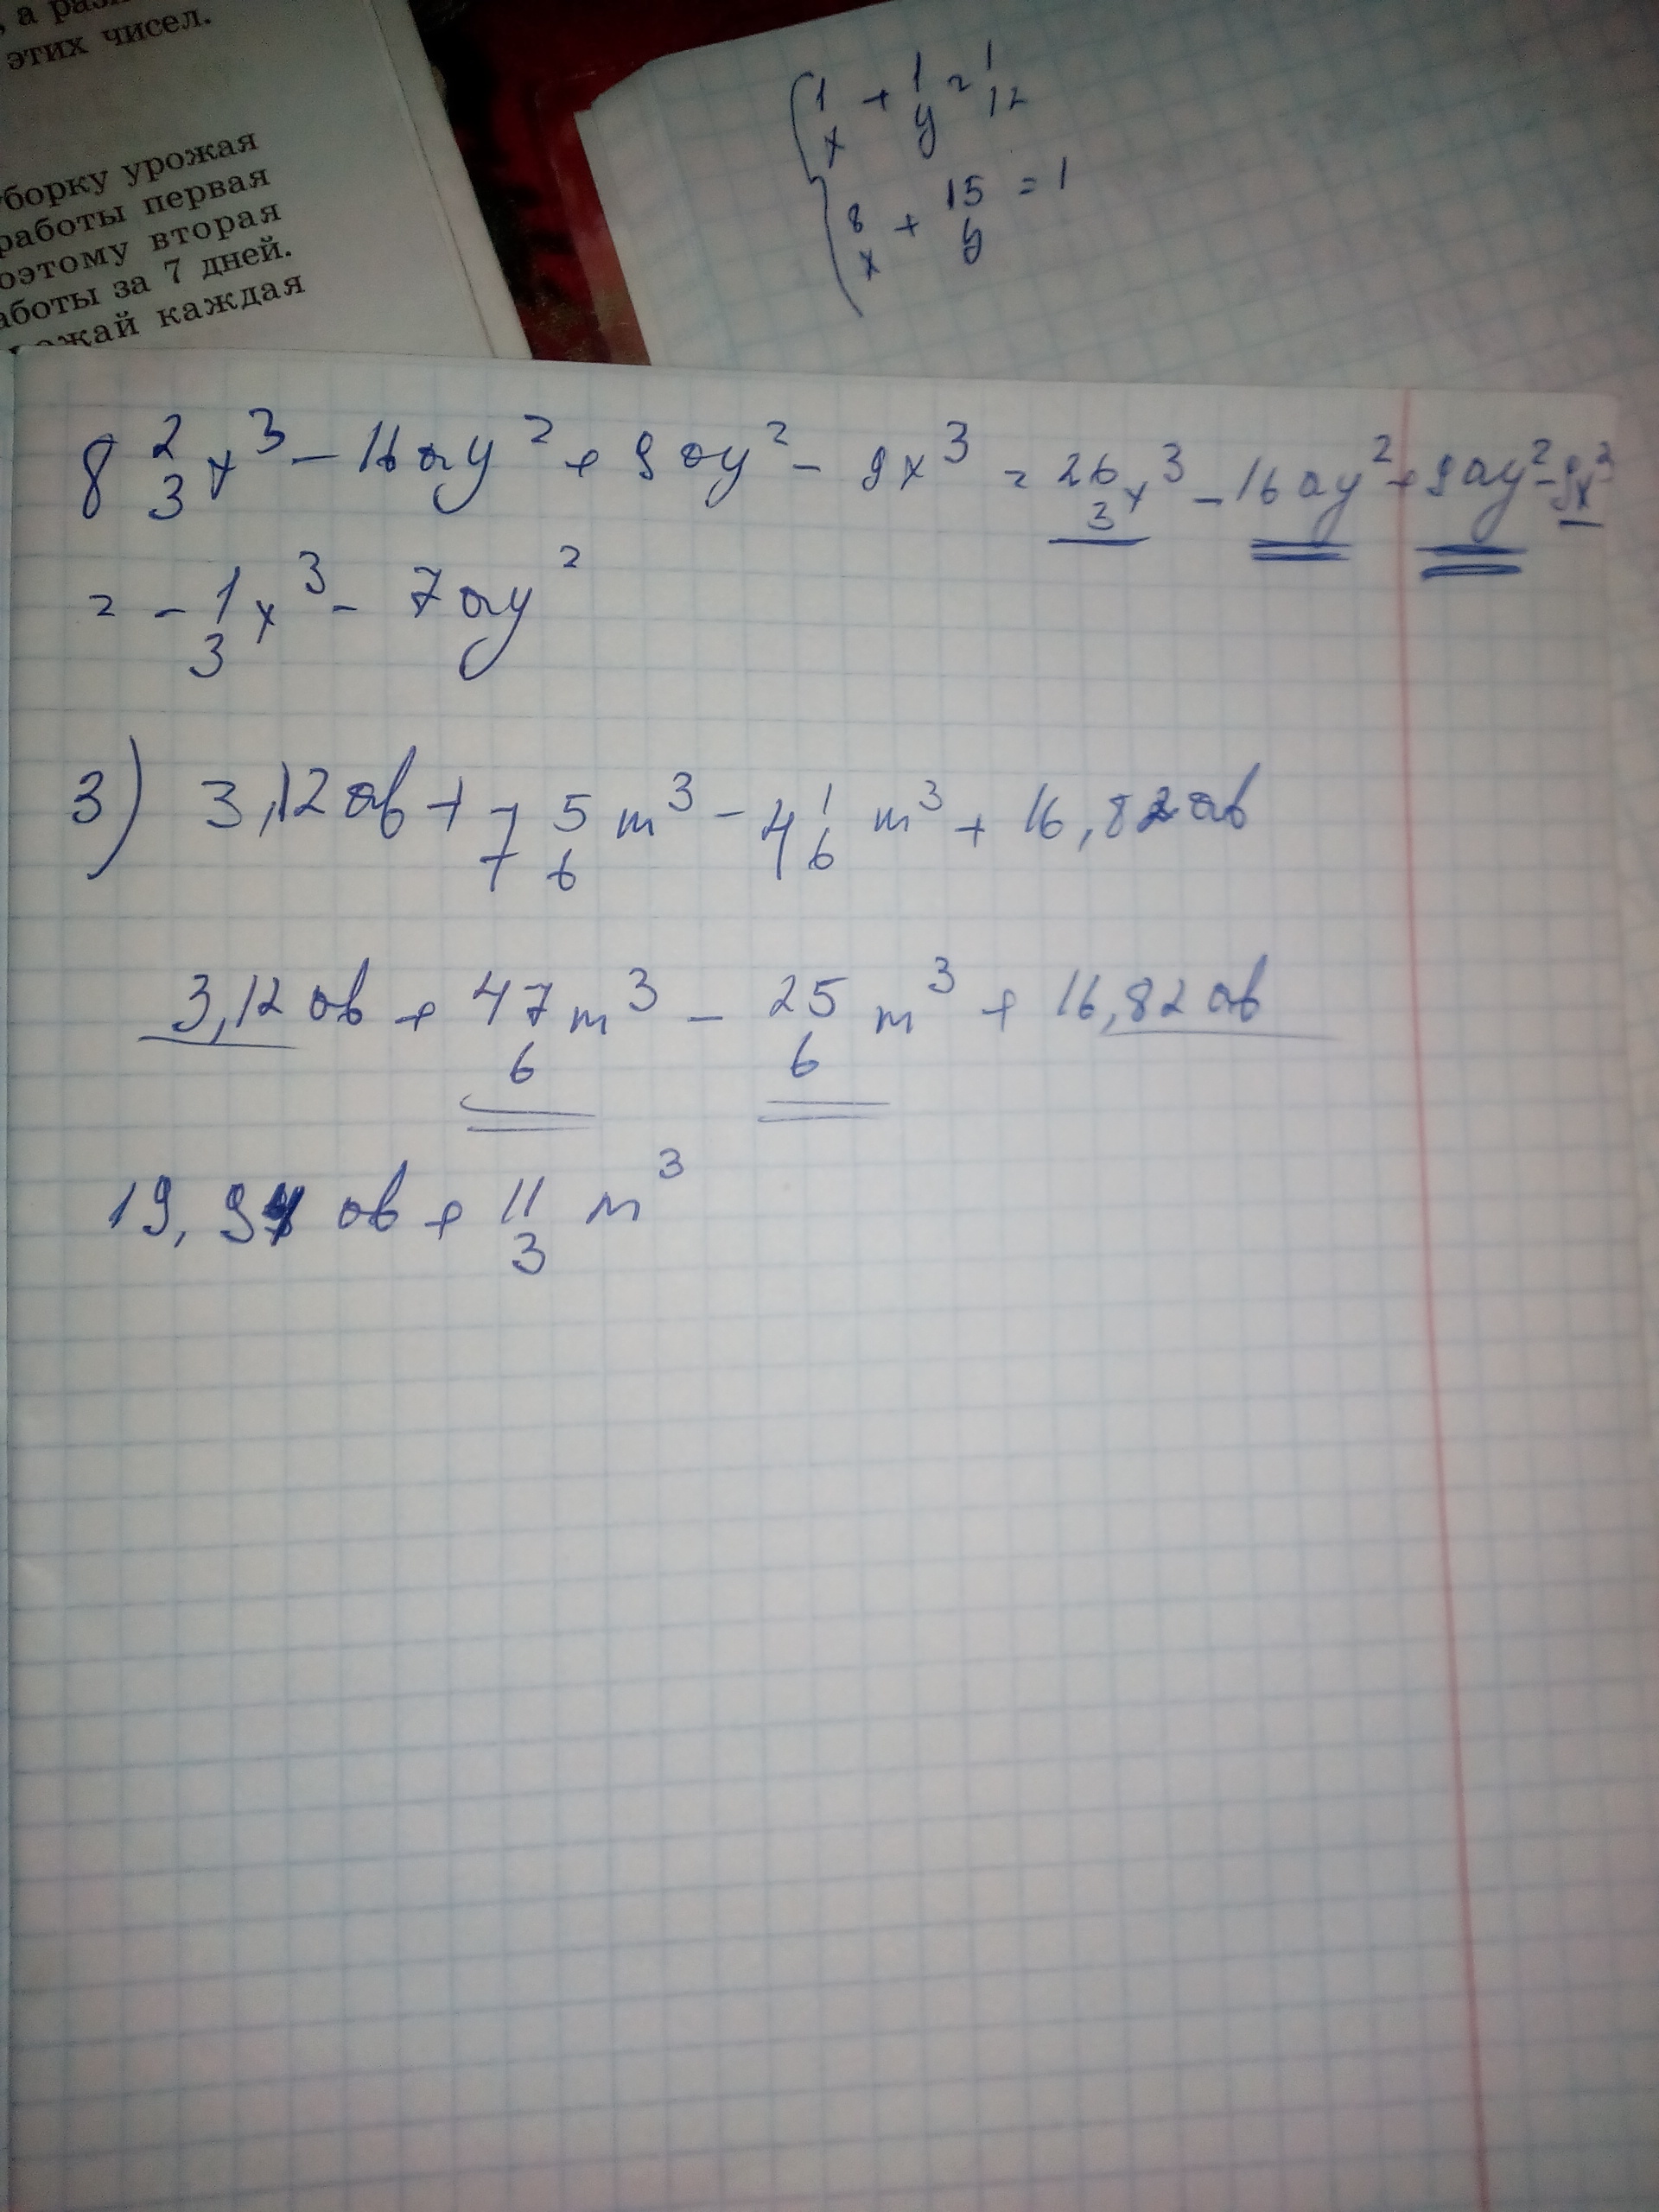 , а раз
этих чисел.
уборку урожая
работы первая
оэтому вторая
аботы за 7 дней.
ожай каждая
1/x + 1/y = 1/12
8/x + 15/y = 1
8 2/3 x³ - 16ay² + 9ay² - 9x³ = 26/3 x³ - 16ay² + 9ay² - 9x³
= - 1/3 x³ - 7ay²
3) 3,12ab + 7 5/6 m³ - 4 1/6 m³ + 16,82ab
3,12ab + 47/6 m³ - 25/6 m³ + 16,82ab
19,94 ab + 11/3 m³